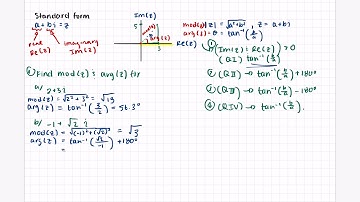 Standard form
a + bi = z
real Re(z)
imaginary Im(z)
Im(z)
5
arg(z)
3
Re(z)
mod(z) |z| = √a²+b² , z = a+bi
arg(z) = θ = tan⁻¹(b/a)
① Im(z) : Re(z) > 0
(QI) tan⁻¹(b/a)
② (QII) → tan⁻¹(b/a) + 180°
③ (QIII) → tan⁻¹(b/a) - 180°
④ (QIV) → tan⁻¹(b/a).
Find mod(z) : arg(z) for
a/ 2+3i
mod(z) = √2² + 3² = √13
arg(z) = tan⁻¹(3/2) = 56.3°
b/ -1 + √2 i
mod(z) = √(-1)² + (√2)² = √3
arg(z) = tan⁻¹(√2/-1) + 180°
=